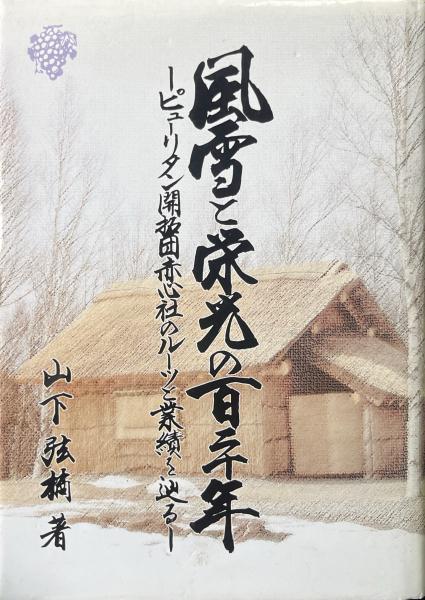 風雪と栄光の百二十年
―ピューリタン開拓団赤心社のルーツと業績を辿る―
山下弦橘 著